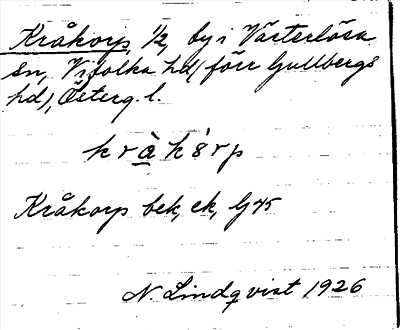 Kråkorp, 1/2, by i Västerlösa
sn, Vifolka hd (förr Gullbergs
hd), Österg. l.
kråkôrp
Kråkorp bek, ek, Gj 45
N. Lindqvist 1926